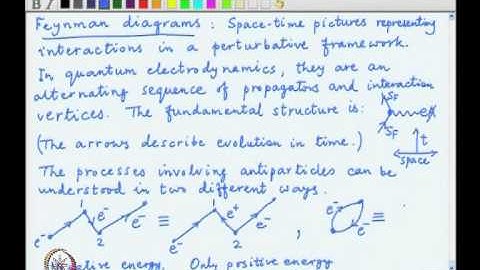 Feynman diagrams : Space-time pictures representing
interactions in a perturbative framework.
In quantum electrodynamics, they are an
alternating sequence of propagators and interaction
vertices. The fundamental structure is:
S_F
eA
S_F
(The arrows describe evolution in time.)
t
space
The processes involving antiparticles can be
understood in two different ways.
1 1
e⁻ e⁻ ≡ e⁺ e⁻ , e⁻ ≡
e⁻ 2 e⁻ 2
energy. Only positive energy